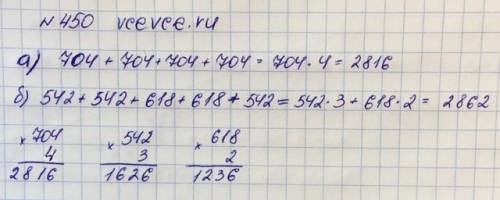 №450 vcevce.ru
а) 704 + 704 + 704 + 704 = 704 · 4 = 2816
б) 542 + 542 + 618 + 618 + 542 = 542 · 3 + 618 · 2 = 2862
× 704 × 542 × 618
4 3 2
2816 1626 1236